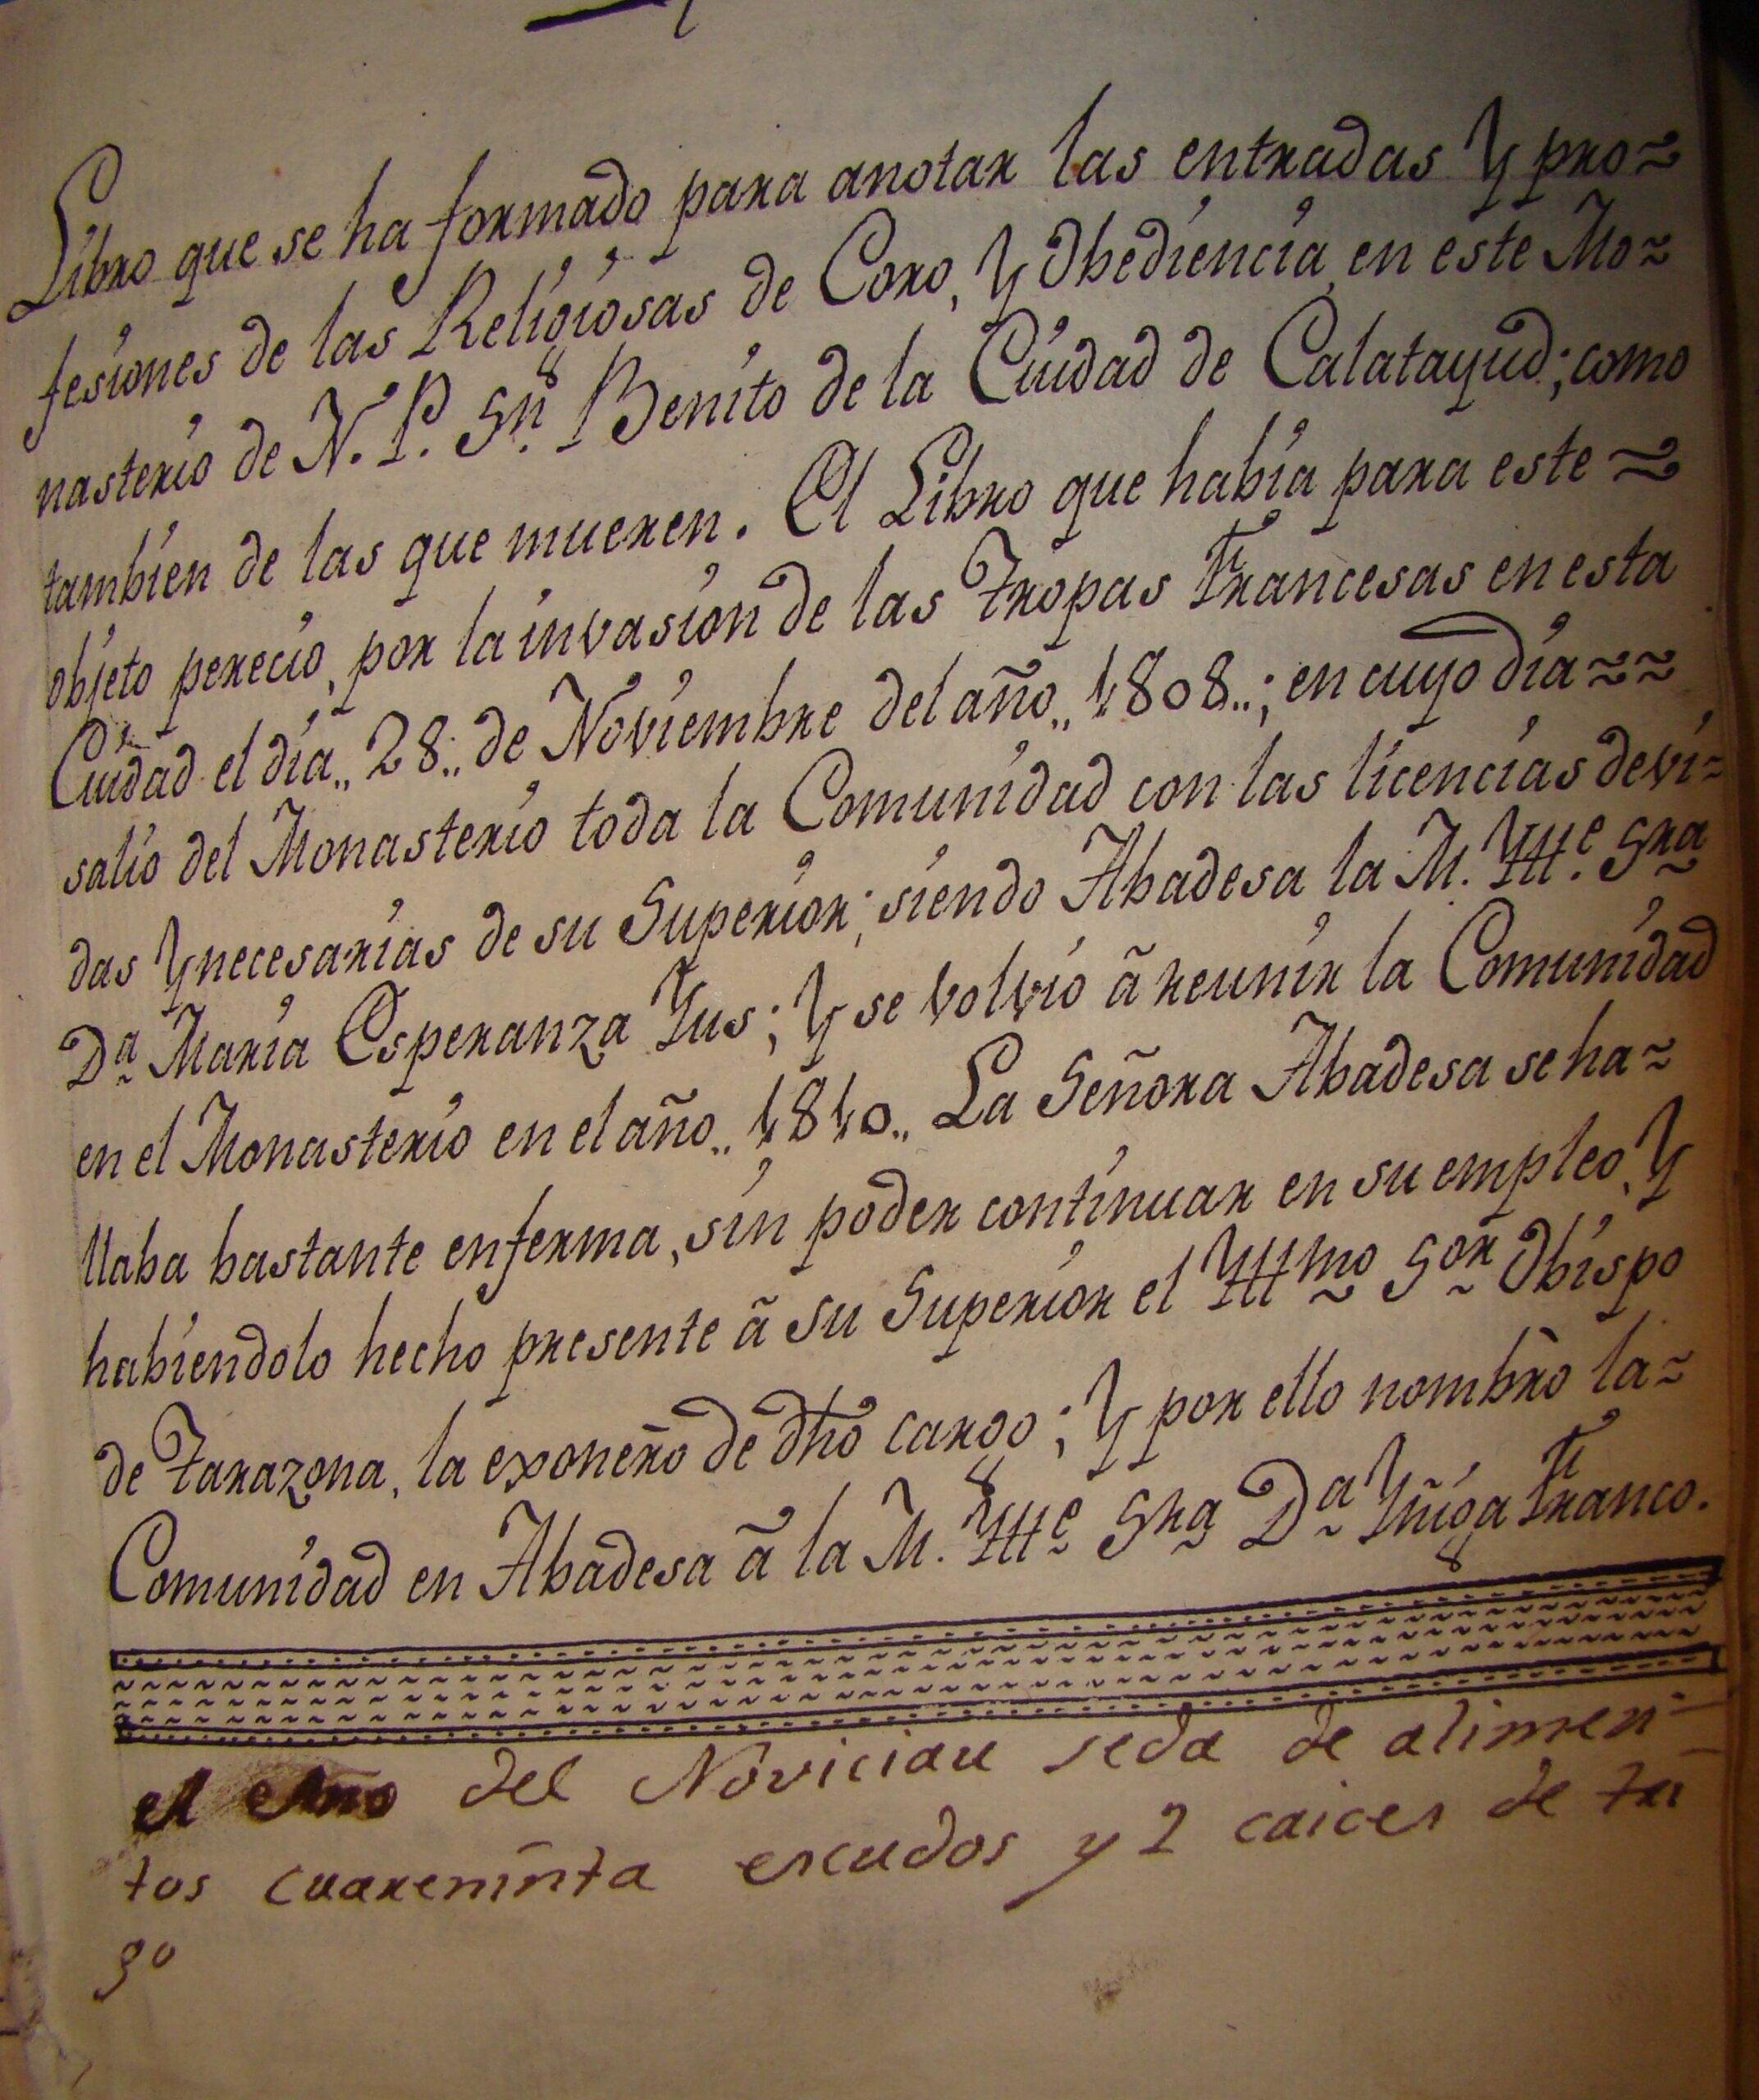 Libro que se ha formado para anotar las entradas y pro~
fesiones de las Religiosas de Coro, y Obediencia, en este Mo~
nasterio de N. P. Sn. Benito de la Ciudad de Calatayud; como
tambien de las que mueren. El Libro que había para este ~
objeto pereció, por la invasion de las Tropas Francesas en esta
Ciudad el día,, 28,, de Noviembre del año,, 1808,,; en cuyo día ~~
salio del Monasterio toda la Comunidad con las licencias devi~
das y necesarias de su Superior; siendo Abadesa la M. Ille. Sra
Da. María Esperanza Yus; y se volvio ã reunir la Comunidad
en el Monasterio en el año,, 1810,, La Señora Abadesa se ha~
llaba bastante enferma, sin poder continuar en su empleo, y
habiendolo hecho presente ã su Superior el Illmo Sor Obispo
de Tarazona, la exonerò de dho cargo; y por ello nombrò la~
Comunidad en Abadesa ã la M. Ille Sra Da Yñiga Franco.
el Año del Noviciau seda de alimen-
tos cuareninta escudos y 2 caices de tri
go